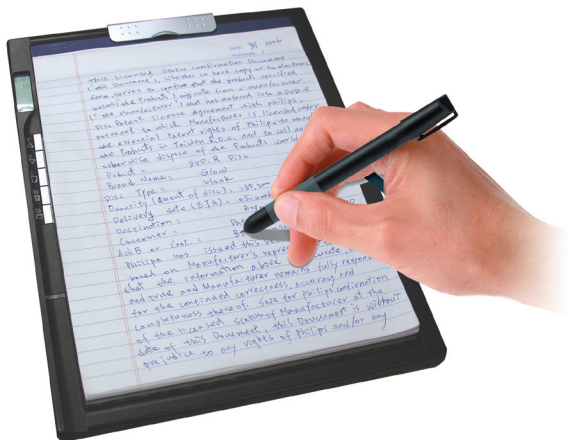 This Licensed Status confirmation Document
("this Document"), whether in hard copy or in electronic
form, serves to confirm that the products specified
("the Manufacturer") that has entered into a DVD-R
Disc Patent License Agreement with Philips,
pursuant to which Manufacturer is licensed under
the essential Patent rights of Philips to manu
the Products in Taiwan R.O.C. and to sell and
otherwise dispose of the Products world
Product : DVD-R Disc
Brand Name : Glow
Disc Type : blank
Quantity (amount of disc) :
Delivery date (ETA) :
Destination :
Customer :
AWB or Cont. :
Philips has issued this
based on Manufacturer's repre
that the information above
and true and Manufacturer remains fully respon
for the continued correctness, accuracy and
completeness thereof. Save for Philips' confirmation
of the licensed status of Manufacturer at the
date of this Document, this Document is without
prejudice to any rights of Philips and/or any